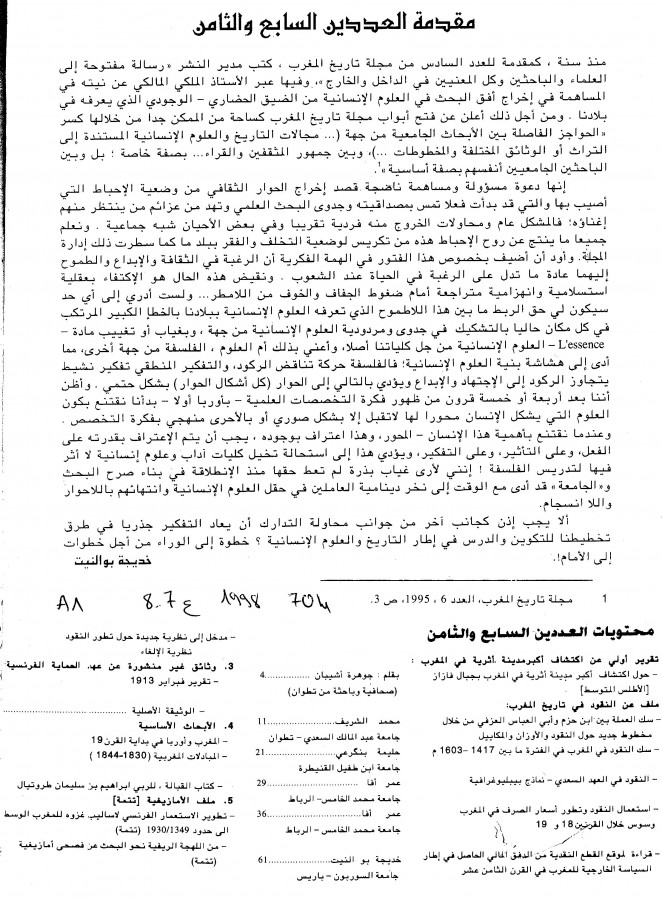 مقدمة العددين السابع والثامن
منذ سنة ، كمقدمة للعدد السادس من مجلة تاريخ المغرب ، كتب مدير النشر «رسالة مفتوحة إلى
العلماء والباحثين وكل المعنيين في الداخل والخارج»، وفيها عبر الأستاذ الملكي المالكي عن نيته في
المساهمة في إخراج أفق البحث في العلوم الإنسانية من الضيق الحضاري – الوجودي الذي يعرفه في
بلادنا . ومن أجل ذلك أعلن عن فتح أبواب مجلة تاريخ المغرب كساحة من الممكن جدا من خلالها كسر
«الحواجز الفاصلة بين الأبحاث الجامعية من جهة (... مجالات التاريخ والعلوم الإنسانية المستندة إلى
التراث أو الوثائق المختلفة والمخطوطات ...)، وبين جمهور المثقفين والقراء... بصفة خاصة ؛ بل وبين
الباحثين الجامعيين أنفسهم بصفة أساسية»1.
إنها دعوة مسؤولة ومساهمة ناضجة قصد إخراج الحوار الثقافي من وضعية الإحباط التي
أصيب بها والتي قد بدأت فعلا تمس بمصداقيته وجدوى البحث العلمي وتهد من عزائم من ينتظر منهم
إغناؤه؛ فالمشكل عام ومحاولات الخروج منه فردية تقريبا وفي بعض الأحيان شبه جماعية . ونعلم
جميعا ما ينتج عن روح الإحباط هذه من تكريس لوضعية التخلف والفقر ببلد ما كما سطرت ذلك إدارة
المجلة. وأود أن أضيف بخصوص هذا الفتور في الهمة الفكرية أن الرغبة في الثقافة والإبداع والطموح
إليهما عادة ما تدل على الرغبة في الحياة عند الشعوب . ونقيض هذه الحال هو الإكتفاء بعقلية
استسلامية وانهزامية متراجعة أمام ضغوط الجفاف والخوف من اللامطر... ولست أدري إلى أي حد
سيكون لي حق الربط ما بين هذا اللاطموح الذي تعرفه العلوم الإنسانية ببلادنا بالخطإ الكبير المرتكب
في كل مكان حاليا بالتشكيك في جدوى ومردودية العلوم الإنسانية من جهة ، وبغياب أو تغييب مادة –
L'essence – العلوم الإنسانية من جل كلياتنا أصلا، وأعني بذلك أم العلوم ، الفلسفة من جهة أخرى، مما
أدى إلى هشاشة بنية العلوم الإنسانية؛ فالفلسفة حركة تناقض الركود، والتفكير المنطقي تفكير نشيط
يتجاوز الركود إلى الإجتهاد والإبداع ويؤدي بالتالي إلى الحوار (كل أشكال الحوار) بشكل حتمي . وأظن
أننا بعد أربعة أو خمسة قرون من ظهور فكرة التخصصات العلمية – بأوربا أولا – بدأنا نقتنع بكون
العلوم التي يشكل الإنسان محورا لها لاتقبل إلا بشكل صوري أو بالأحرى منهجي بفكرة التخصص .
وعندما نقتنع بأهمية هذا الإنسان – المحور، وهذا اعتراف بوجوده ، يجب أن يتم الإعتراف بقدرته على
الفعل، وعلى التأثير، وعلى التفكير، ويؤدي هذا إلى استحالة تخيل كليات آداب وعلوم إنسانية لا أثر
فيها لتدريس الفلسفة ! إنني لأرى غياب بذرة لم تعط حقها منذ الإنطلاقة في بناء صرح البحث
و«الجامعة» قد أدى مع الوقت إلى نخر دينامية العاملين في حقل العلوم الإنسانية وانتهائهم باللاحوار
واللا انسجام.
ألا يجب إذن كجانب آخر من جوانب محاولة التدارك أن يعاد التفكير جذريا في طرق
تخطيطنا للتكوين والدرس في إطار التاريخ والعلوم الإنسانية ؟ خطوة إلى الوراء من أجل خطوات
إلى الأمام!.
خديجة بوالنيت
1 مجلة تاريخ المغرب، العدد 6 ، 1995، ص 3.
704 1998 ع 8.7 A1
محتويات العددين السابع والثامن
تقرير أولي عن اكتشاف أكبرمدينة أثرية في المغرب :
– حول اكتشاف أكبر مدينة أثرية في المغرب بجبال فازاز
[الأطلس المتوسط]
ملف عن النقود في تاريخ المغرب:
– سك العملة بين ابن حزم وأبي العباس العزفي من خلال
مخطوط جديد حول النقود والأوزان والمكاييل
– سك النقود في المغرب في الفترة ما بين 1417 –1603 م
– النقود في العهد السعدي – نماذج بيبليوغرافية
– استعمال النقود وتطور أسعار الصرف في المغرب
وسوس خلال القرنين 18 و 19
– قراءة لموقع القطع النقدية من الدفق المالي الحاصل في إطار
السياسة الخارجية للمغرب في القرن الثامن عشر
بقلم : جوهرة أشيبان ............4
(صحافية وباحثة من تطوان)
محمد الشريف..................11
جامعة عبد المالك السعدي – تطوان
حليمة بنكرعي................21
جامعة ابن طفيل القنيطرة
عمر أفا ...................29
جامعة محمد الخامس– الرباط
عمر أفا....................36
جامعة محمد الخامس– الرباط
خديجة بو النيت................61
جامعة السوربون – باريس
– مدخل إلى نظرية جديدة حول تطور النقود
نظرية الإلغاء
3. وثائق غير منشورة عن عهد الحماية الفرنسية
– تقرير فبراير 1913
– الوثيقة الأصلية ..........
4. الأبحاث الأساسية
– المغرب وأوربا في بداية القرن19
– المبادلات المغربية (1830–1844 )
– كتاب القبالة ، للربي ابراهيم بن سليمان طروتيال
5. ملف الأمازيغية [تتمة]
– تطوير الاستعمار الفرنسي لأساليب غزوه للمغرب الوسط
الى حدود 1930/1349 (تتمة)
– من اللهجة الريفية نحو البحث عن فصحى أمازيغية
(تتمة)